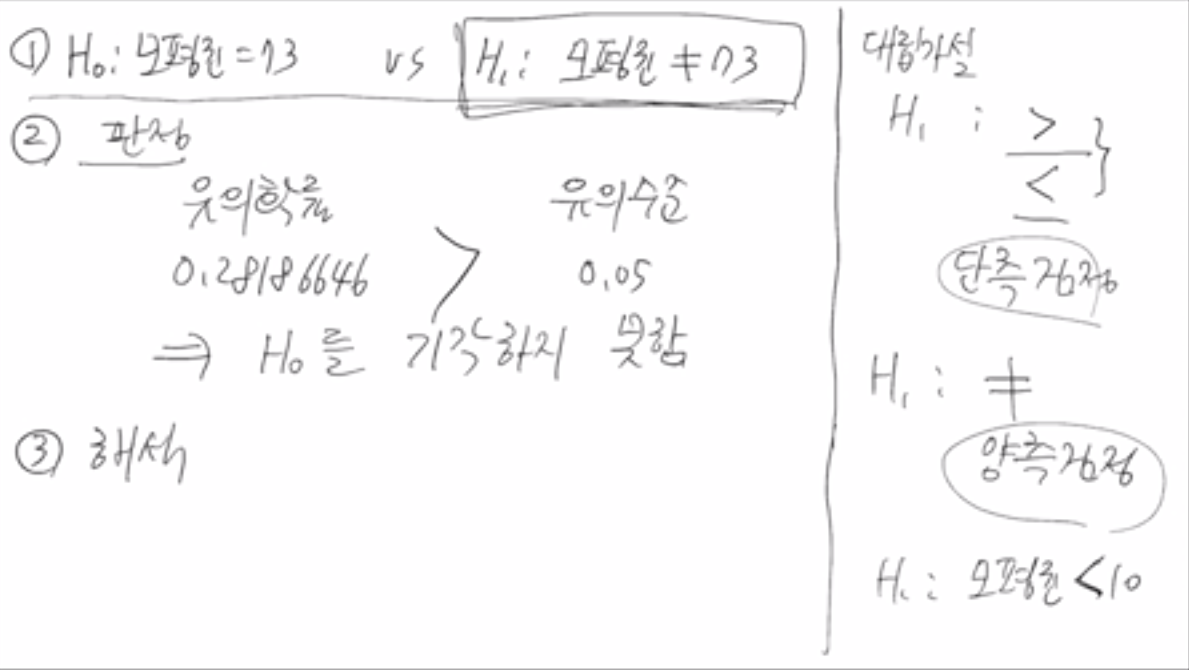 ① H₀: 모평균 = 73 vs H₁: 모평균 ≠ 73
② 판정
유의확률 유의수준
0.28186646 > 0.05
⇒ H₀를 기각하지 못함
③ 해석
대립가설
H₁ : >
<
단측검정
H₁ : ≠
양측검정
H₁ : 모평균 < 10